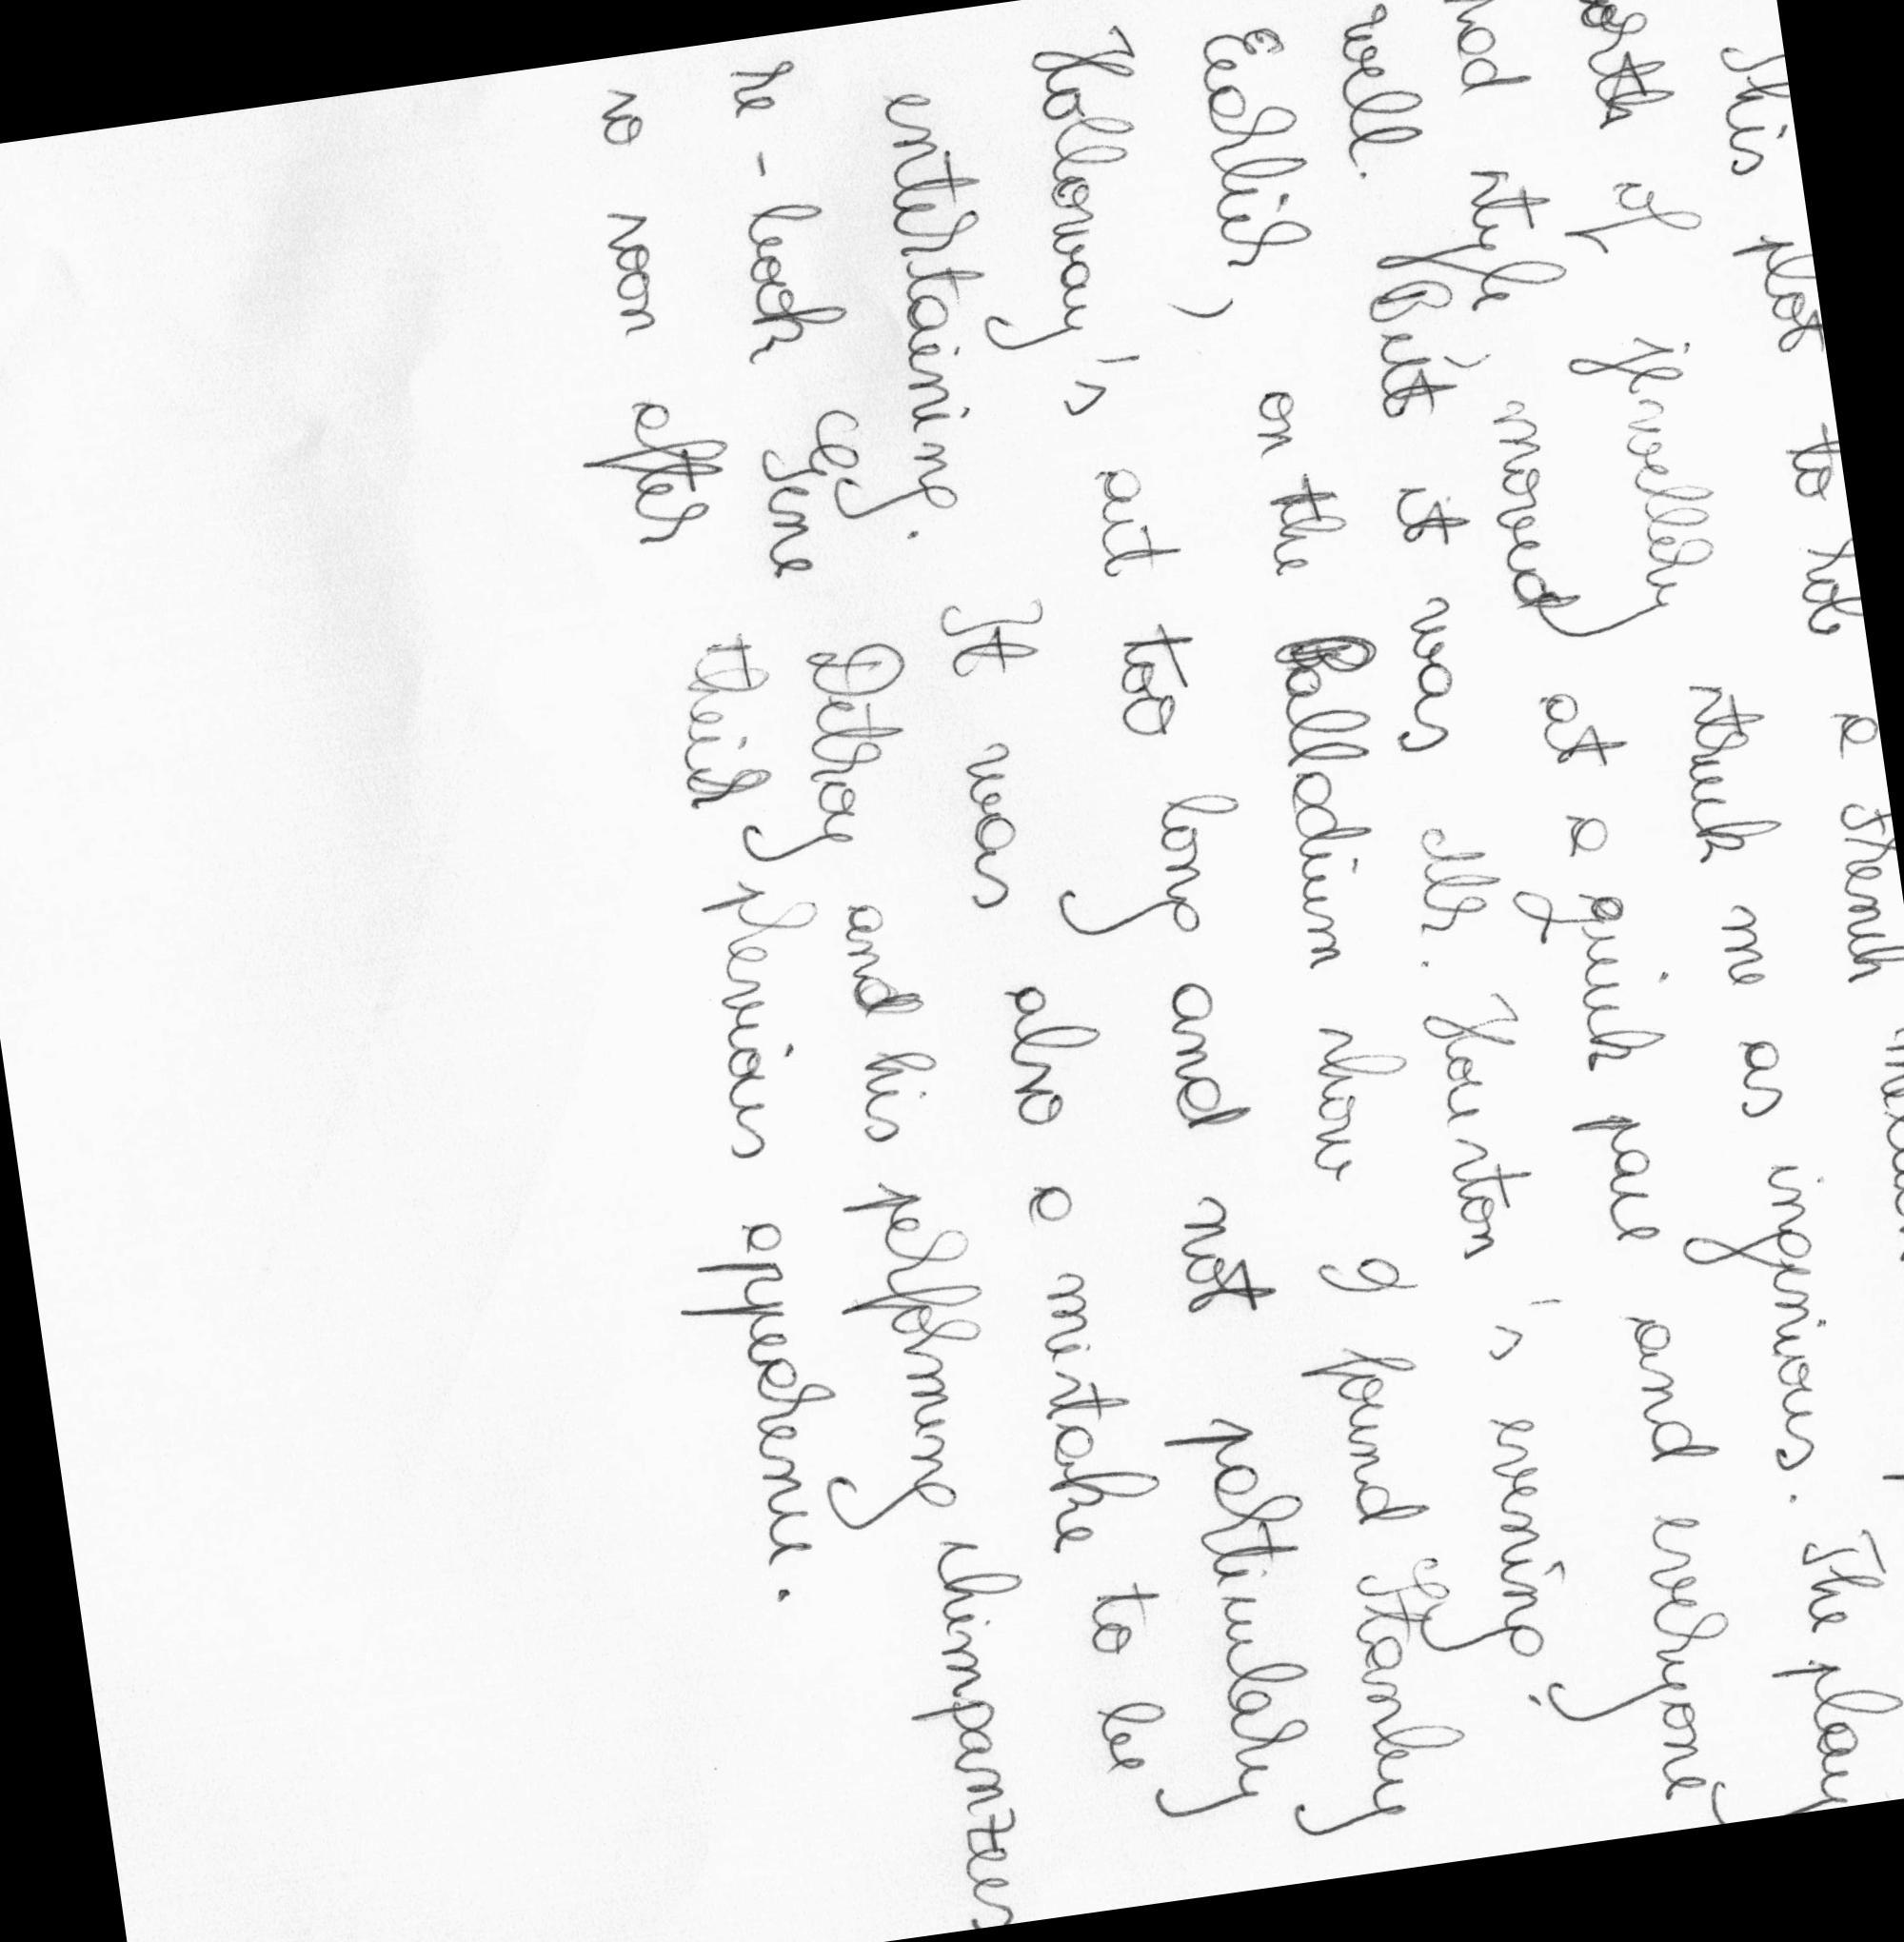 This plot to rob a French
worth of jewellery struck me as ingenious. The play
had style, moved at a quick pace and everyone
well. But it was Mr. Houston's evening.
Earlier, on the Palladium show I found Stanley
Holloway's act too long and not particularly
entertaining. It was also a mistake to be
re-book Gene Detroy and his performing chimpanzees
so soon after their previous appearance.